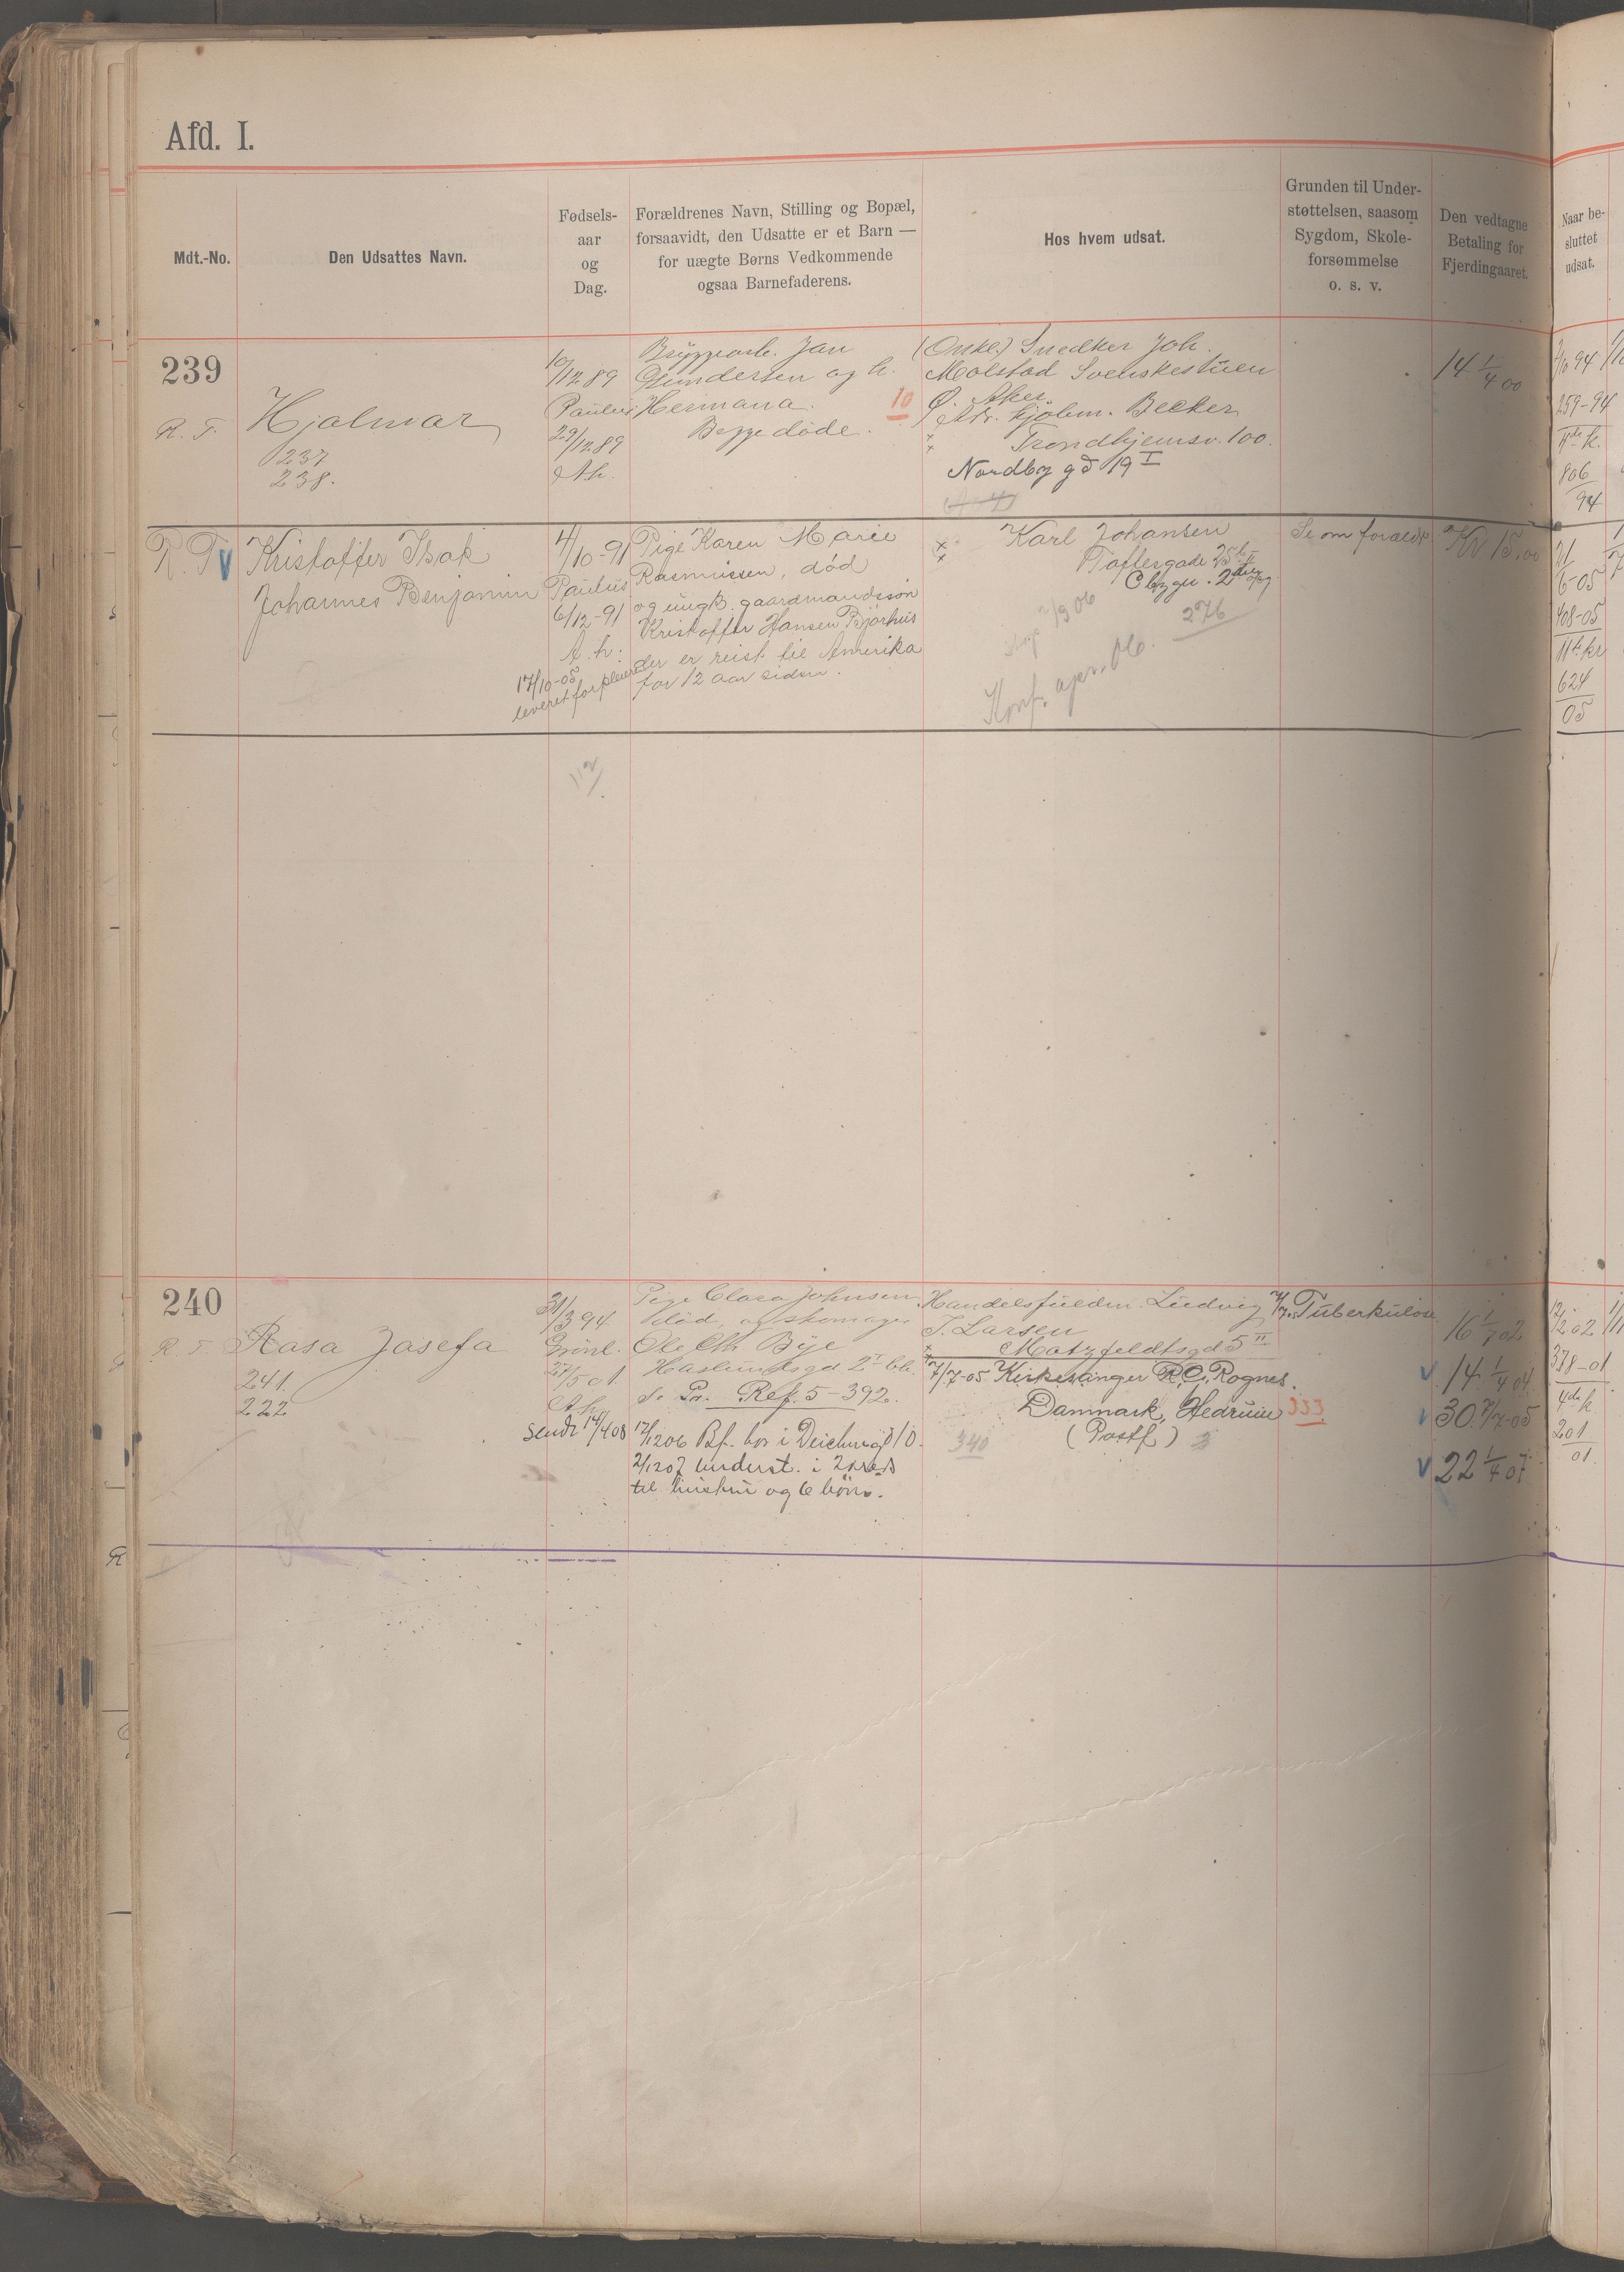 Afd. I.
Mdt.-No.
Den Udsattes Navn.
Fødsels-
aar
og
Dag.
Forældrenes Navn, Stilling og Bopæl,
forsaavidt, den Udsatte er et Barn —
for uægte Børns Vedkommende
ogsaa Barnefaderens.
Hos hvem udsat.
Grunden til Under-
støttelsen, saasom
Sygdom, Skole-
forsømmelse
o. s. v.
Den vedtagne
Betaling for
Fjerdingaaret.
Naar be-
sluttet
udsat.
239
R. F.
Hjalmar
237
238.
10/12 89
Paulus
29/12 89
A.h.
Bryggearb. Jan
Gundersen og h.
Hermana.
Begge døde.
10
(Onkel) Snedker Joh.
Molstad Svenskestuen
Ø. Aker.
Adr. Kjøbm. Becker
Trondhjemsv. 100.
Nordby gd 19 I
14 1/4 00
7/10 94
259-94
11te k.
806
94
R. F. V
Kristoffer Isak
Johannes Benjamin
4/10-91
Paulus
6/12-91
A. h.
17/10-05
leveret forpleier
Pige Karen Marie
Rasmussen, død
og ungk. gaardmandssøn
Kristoffer Hansen Bjørhus
der er reist til Amerika
for 12 aar siden.
Karl Johansen
Toftesgade 25 b. II
Opg. 2
276
9 06
Konf. apr. 06.
Se om foræld.
Kr 15,00
21/6-05
408-05
11te kr
624
05
112
240
R. F.
Rosa Josefa
241.
222
31/3 94
Grönl.
27/5 01
A.h.
Sendt 14/4 08
Pige Clara Johnsen
død, og skomager
Ole Chr. Bye
Haslundsgd 2 I
Se Pr. Ref. 5-392.
17/12 06 Bf. bor i Deichmgd 10.
2/12 07 Underst. i 2 kreds
til hustru og 6 børn.
Handelsfuldm. Ludvig
J. Larsen
Motzfeldtsgd 5 II
7/7-05 Kirkesanger R. O. Rognes.
Danmark, Hedrum
(Postf)
340
333
Tuberkulose
16 1/7 02
V 14 1/4 04
V 30. 7/7-05
V 22 1/4 07
12/2 02
378-01
4de k
201
01.